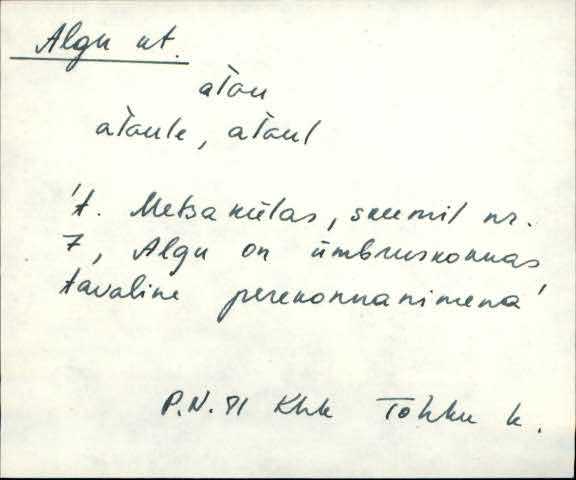 Algu nt.
aĺou
aĺoule, aĺoul
't. Metsakülas, skeemil nr.
7, Algu on ümbruskonnas
tavaline perekonnanimena'
P.N. 81 Khk Tõhku k.